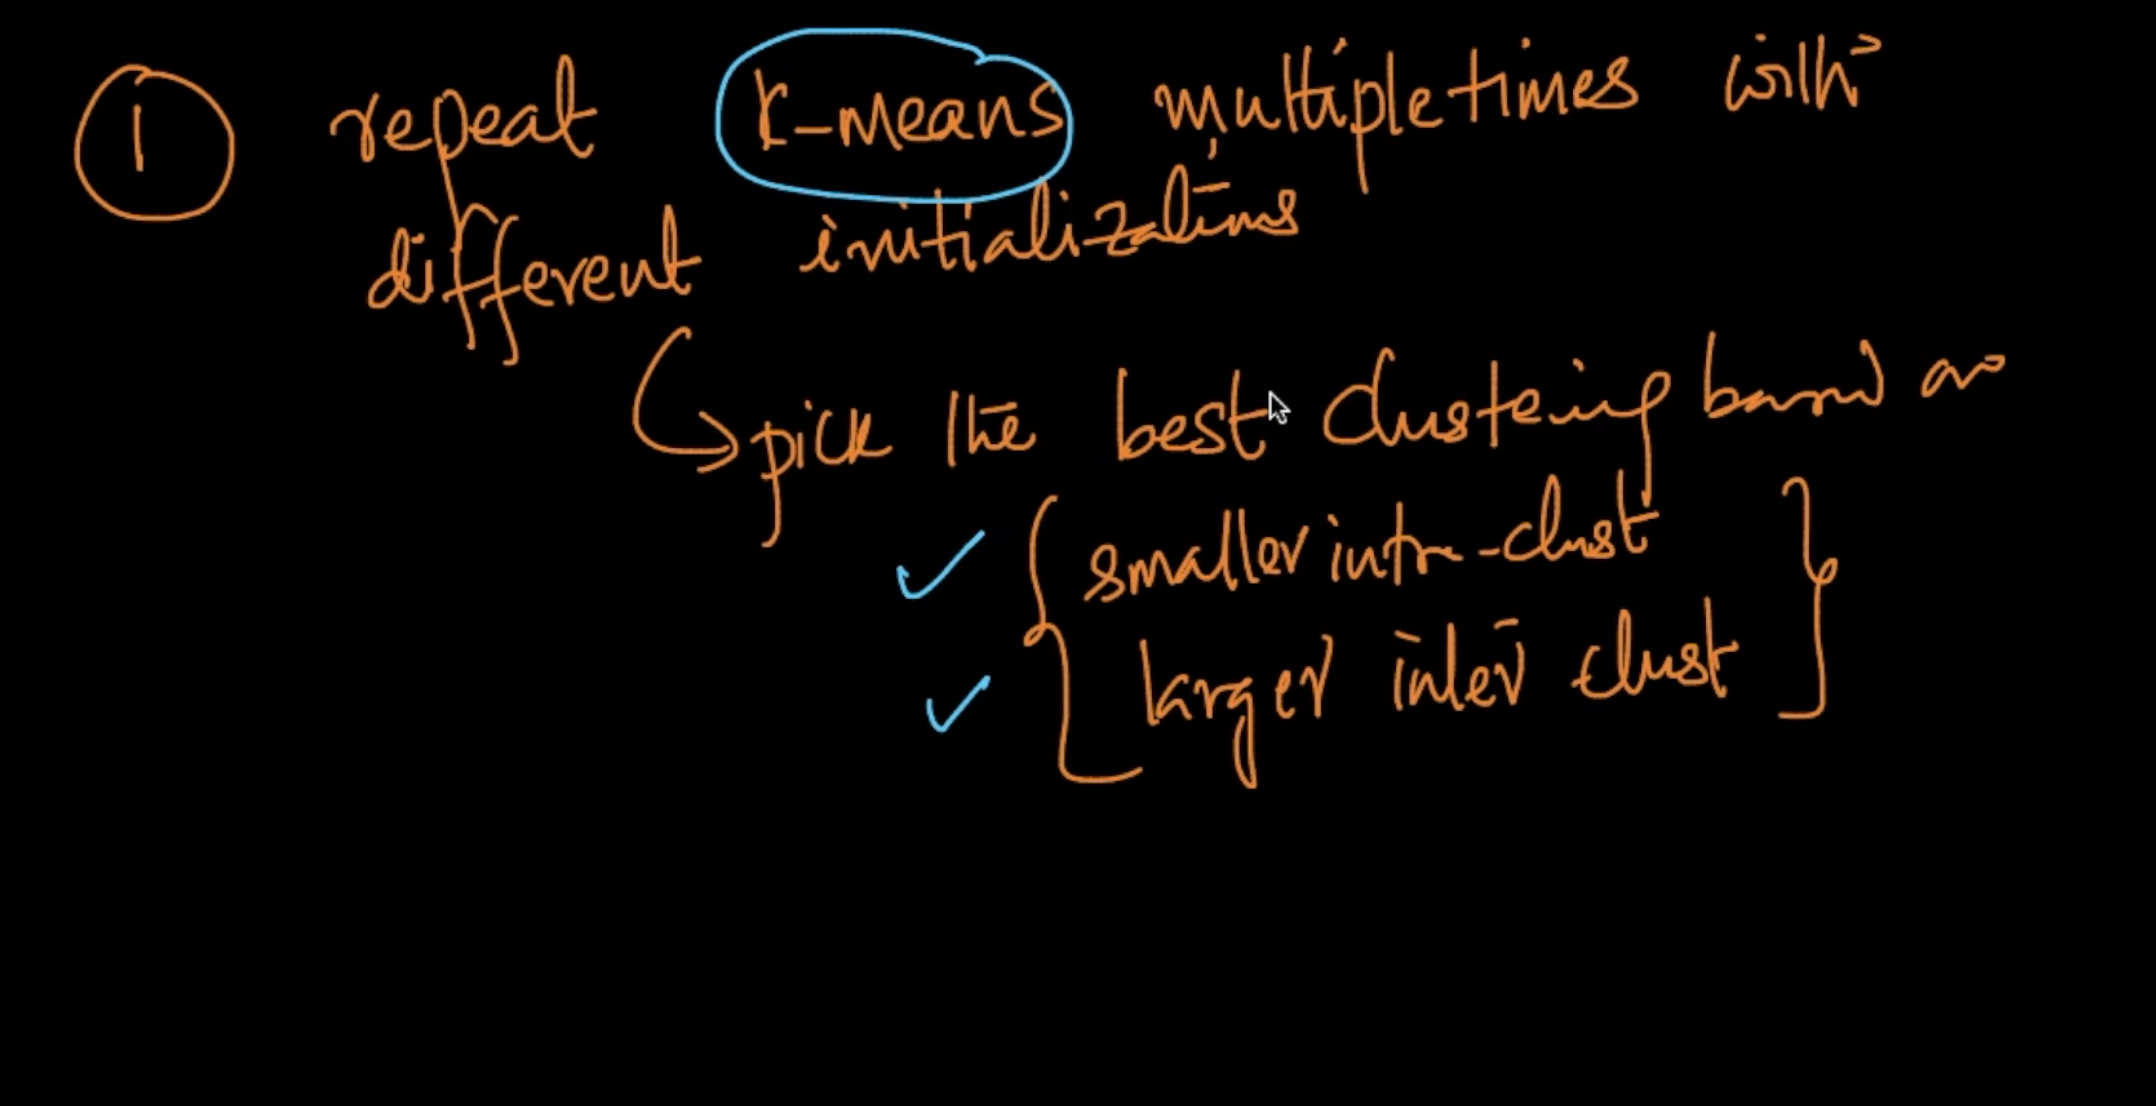 1 repeat k-means multiple times with
different initializations
pick the best clustering based on
smaller intra-clust
larger inter clust